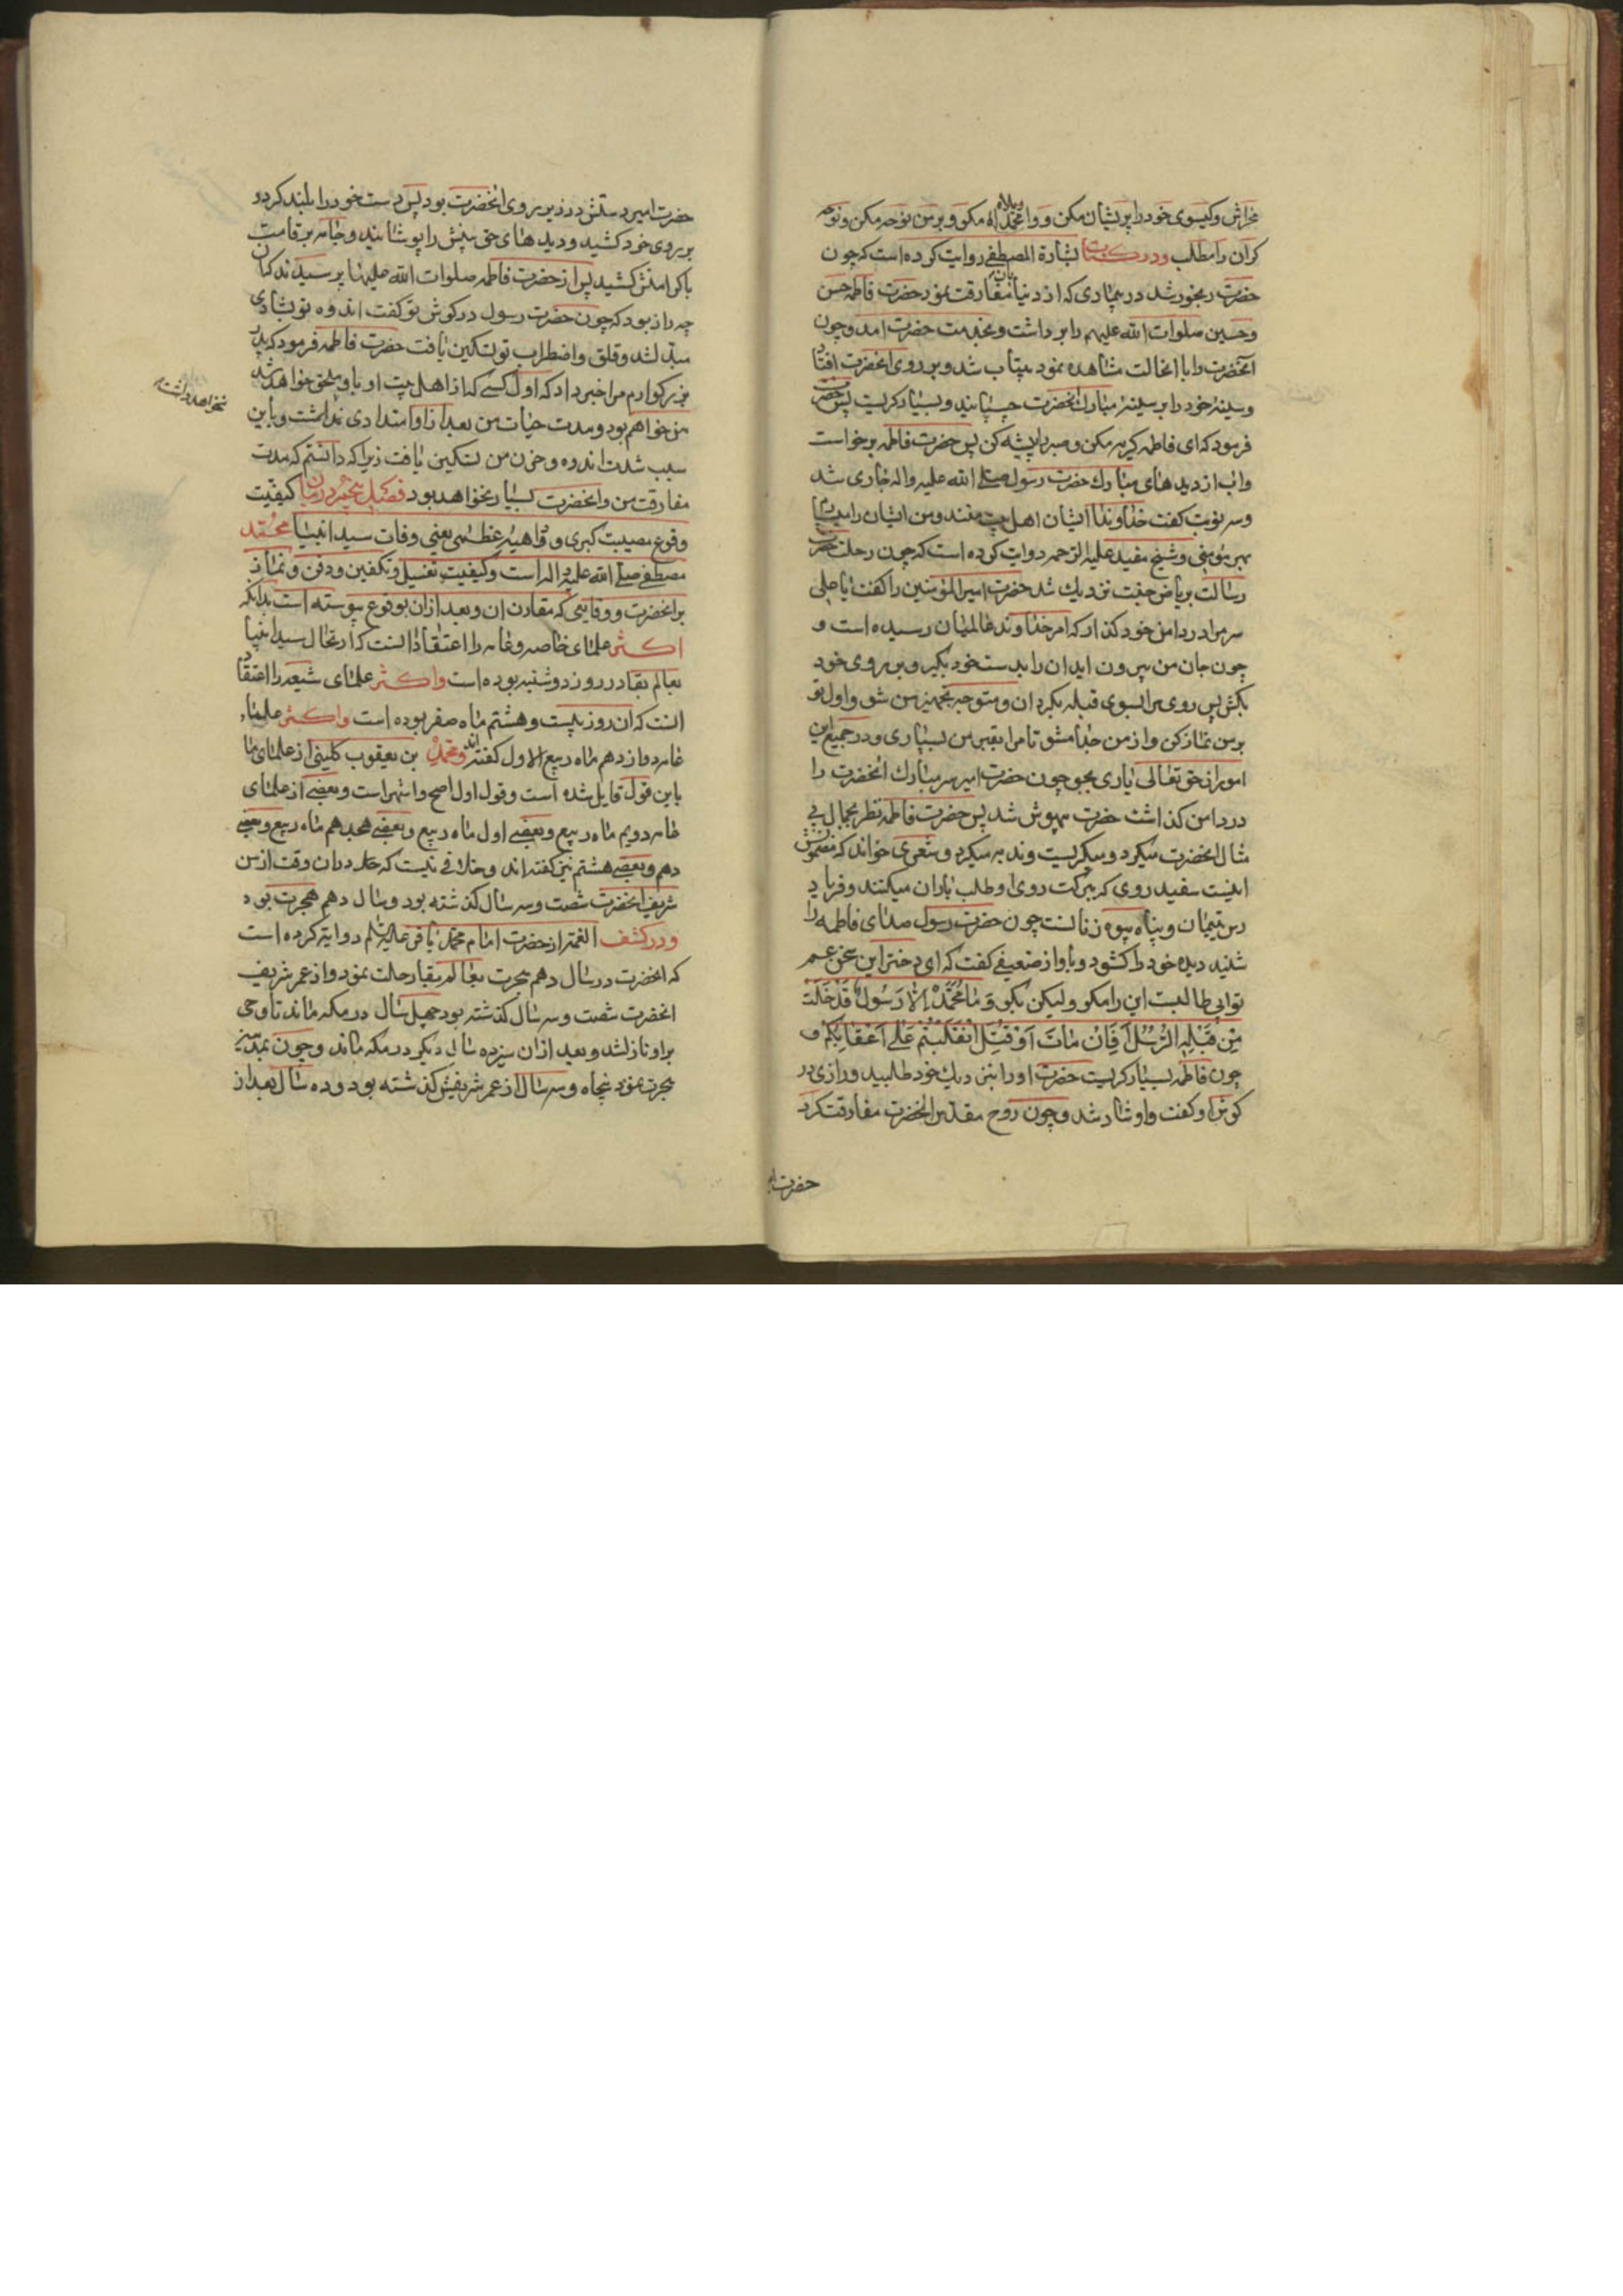 مخراش و کیسوی خود را پریشان مکن و واویلاه مکو و بر من نوحه مکن و نوحه
کران را مطلب و در کتاب بشارة المصطفی روایت کرده است که چون
حضرت رنجور شد در بیماری که از دنیا بآن مفارقت نمود حضرت فاطمه حسن
و حسین صلوات الله علیهم را برداشت و بخدمت حضرت امد و چون
آنحضرت را با انحالت مشاهده نمود بیتاب شد و بر روی انحضرت افتاد
و سینه خود را بر سینه مبارک انحضرت چسپانید و بسیار کریست پس حضرت
فرمود که ای فاطمه کریه مکن و صبر را پیشه کن پس حضرت فاطمه برخواست
و اب از دیدهای مبارک حضرت رسول صلی الله علیه واله جاری شد
و سه نوبت کفت خداوندا ایشان اهل بیت منند و من ایشان را میسپارم
بهر مؤمنی و شیخ مفید علیه الرحمه روایت کرده است که چون رحلت حضرت
رسالت بریاض جنت نزدیك شد حضرت امیر المؤمنین را کفت یا علی
سر مرا در دامن خود کذار که امر خداوند عالمیان رسیده است و
چون جان من بیرون اید ان را بدست خود بکیر و بر روی خود
بکش پس روی مرا بسوی قبله بکردان و متوجه تجهیز من شو و اول تو
بر من نماز کن و از من جدا مشو تا مرا بقبر من بسپاری و در جمیع این
امور از حق تعالی یاری بجو چون حضرت امیر سر مبارك انحضرت را
در دامن کذاشت حضرت بیهوش شد پس حضرت فاطمه نظر بجمال بی
مثال انحضرت میکرد و میکریست و ندبه میکرد و شعری خواند که مضمونش
اینست سفید روی که ببرکت روی او طلب باران میکنند و فریاد
رس یتیمان و پناه بیوه زنانست چون حضرت رسول صدای فاطمه را
شنید دیده خود را کشود و باواز ضعیفی کفت که ای دختر این سخن عم
تو ابی طالبست این را مکو و لیکن بکو وَ مٰا مُحَمَّدٌ اِلّٰا رَسُولٌ قَدْ خَلَتْ
مِنْ قَبْلِهِ الرُّسُلُ اَفَاِنْ مٰاتَ اَوْ قُتِلَ انْقَلَبْتُمْ عَلٰی اَعْقٰابِکُمْ و
چون فاطمه بسیار کریست حضرت او را بنزدیك خود طلبید و رازی در
کوش او کفت و او شاد شد و چون روح مقدس انحضرت مفارقت کرد
حضرت ا
حضرت امیر دستش در زیر روی انحضرت بود پس دست خود را بلند کرد و
بر روی خود کشید و دیدهای حق بینش را پوشانید و جامه بر قامت
با کرامتش کشید پس از حضرت فاطمه صلوات الله علیها پرسیدند کان
چه راز بود که چون حضرت رسول در کوش تو کفت اندوه تو بشادی
مبدل شد و قلق و اضطراب تو تسکین یافت حضرت فاطمه فرمود که پدر
بزرکوارم مرا خبر داد که اول کسی که از اهل بیت او باو ملحق خواهد شد
من خواهم بود و مدت حیات من بعد از او امتدادی نداشت و باین
نخواهد داشت
سبب شدت اندوه و حزن من تسکین یافت زیرا که دانستم که مدت
مفارقت من و انحضرت بسیار نخواهد بود فصل پنجم در بیان کیفیت
وقوع مصیبت کبری و واهیه عظمی یعنی وفات سید انبیا محمد
مصطفی صلی الله علیه واله است و کیفیت تغسیل و تکفین و دفن و نماز
بر انحضرت و وقایعی که مقارن ان و بعد از ان بوقوع پیوسته است بدانکه
اکثر علمای خاصه و عامه را اعتقاد انست که ارتحال سید انبیا
بعالم بقا در روز دوشنبه بوده است و اکثر علمای شیعه را اعتقاد
انست که ان روز بیست و هشتم ماه صفر بوده است و اکثر علماء
عامه دوازدهم ماه ربیع الاول کفته اند و محمد بن یعقوب کلینی از علمای ما
باین قول قایل شده است و قول اول اصح و اشهر است و بعضی از علمای
عامه دویم ماه ربیع و بعضی اول ماه ربیع و بعضی هجدهم ماه ربیع و بعضی
دهم و بعضی هشتم نیز کفته اند و خلافی نیست که در ان وقت از سن
شریف انحضرت شصت و سه سال کذشته بود و سال دهم هجرت بود
و در کشف الغمه از حضرت امام محمد باقر علیه السلم روایت کرده است
که انحضرت در سال دهم هجرت بعالم بقا رحلت نمود و از عمر شریف
انحضرت شصت و سه سال کذشته بود چهل سال در مکه ماند تا وحی
بر او نازل شد و بعد از ان سیزده سال دیکر در مکه ماند و چون بمدینه
هجرت نمود پنجاه و سه سال از عمر شریفش کذشته بود و ده سال بعد از